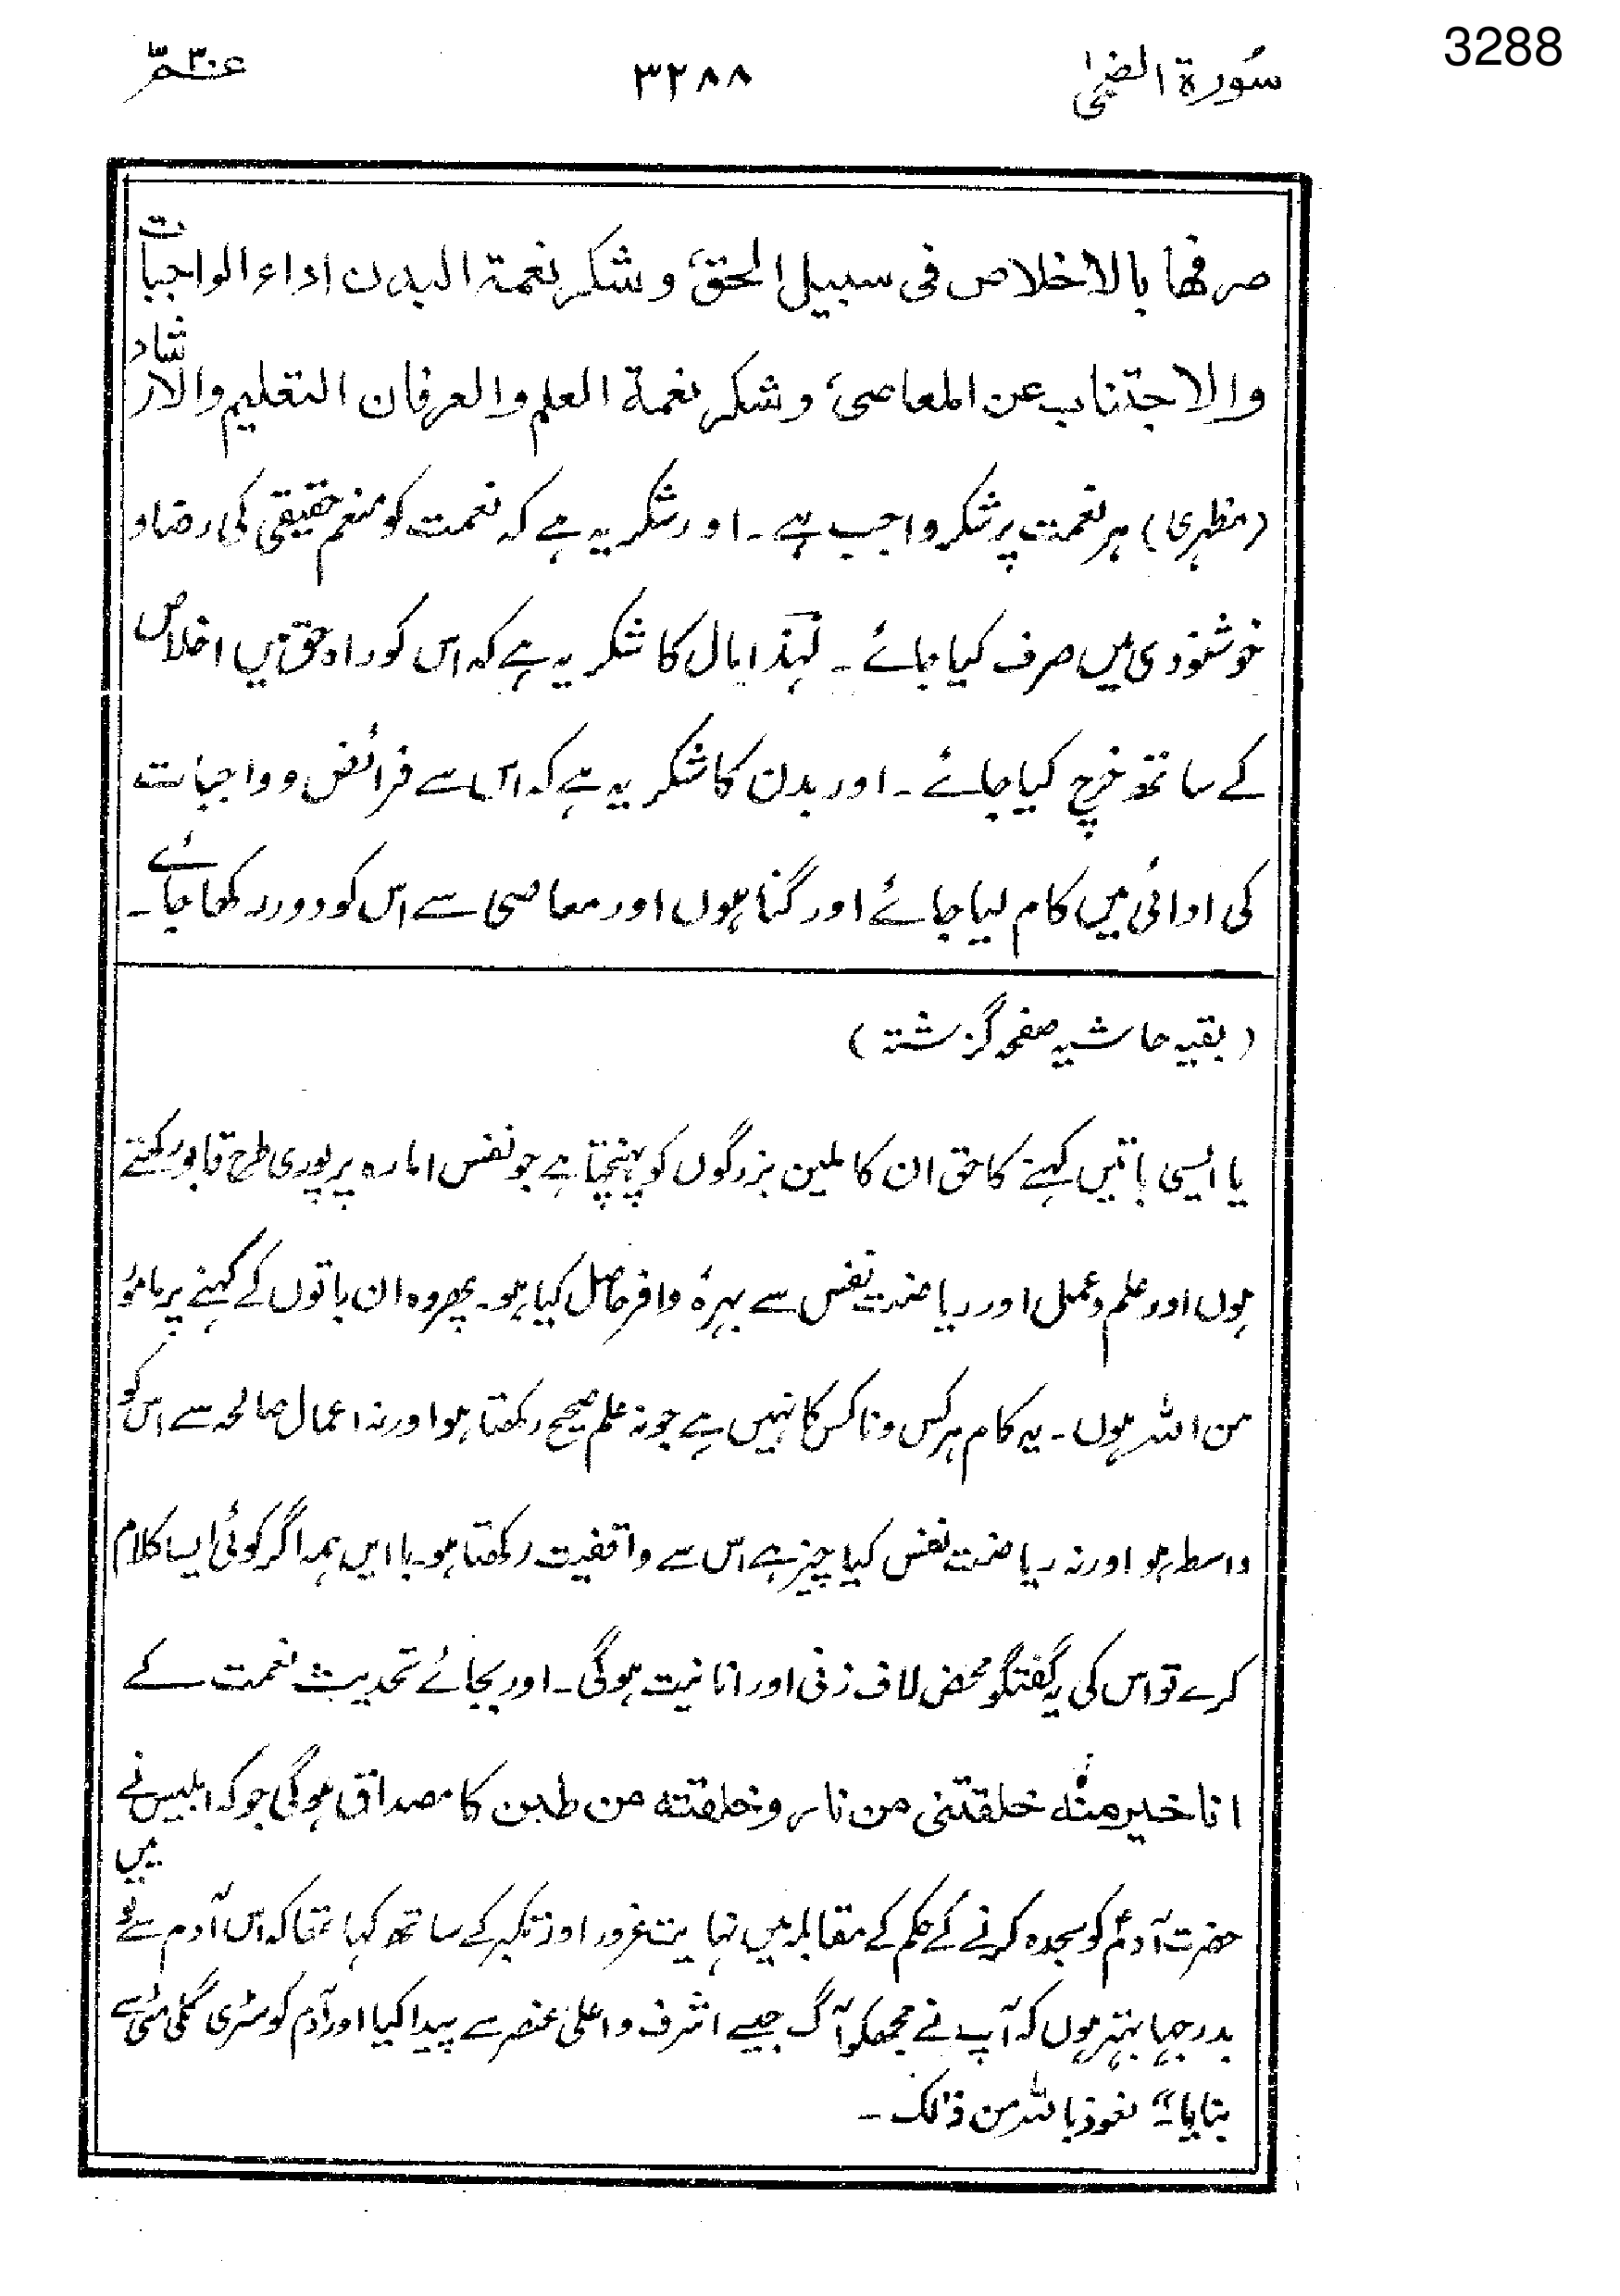 3288
سُورۃ الضحیٰ ۳۲۸۸ عمّ ۳۰
صرفھا بالاخلاص فی سبیل الحق، وشکر نعمۃ البدن اداء الواجبات
والاجتناب عن المعاصی، وشکر نعمۃ العلم والعرفان التعلیم والارشاد
(مظہری) ہر نعمت پر شکر واجب ہے۔ اور شکر یہ ہے کہ نعمت کو منعم حقیقی کی رضا و
خوشنودی میں صرف کیا جائے۔ لہٰذا مال کا شکر یہ ہے کہ اس کو راہ حق میں اخلاص
کے ساتھ خرچ کیا جائے۔ اور بدن کا شکر یہ ہے کہ اس سے فرائض و واجبات
کی ادائی میں کام لیا جائے اور گناہوں اور معاصی سے اس کو دور رکھا جائے۔
(بقیہ حاشیہ صفحہ گزشتہ)
یا ایسی باتیں کہنے کا حق ان کاملین بزرگوں کو پہنچتا ہے جو نفس امارہ پر پوری طرح قابو رکھتے
ہوں اور علم و عمل اور ریاضت نفس سے بہرۂ وافر حاصل کیا ہو۔ پھر وہ ان باتوں کے کہنے پر مامور
من اللہ ہوں۔ یہ کام ہر کس و ناکس کا نہیں ہے جو نہ علم صحیح رکھتا ہو اور نہ اعمال صالحہ سے اس کو
واسطہ ہو اور نہ ریاضت نفس کیا چیز ہے اس سے واقفیت رکھتا ہو۔ با ایں ہمہ اگر کوئی ایسا کلام
کرے تو اس کی یہ گفتگو محض لاف زنی اور انانیت ہوگی۔ اور بجائے تحدیث نعمت کے
انا خیر منہ خلقتنی من نار وخلقتہ من طین کا مصداق ہوگی جو کہ ابلیس نے
حضرت آدمؑ کو سجدہ کرنے کے حکم کے مقابلہ میں نہایت غرور اور تکبر کے ساتھ کہا تھا کہ اس آدم سے تو میں
بدرجہا بہتر ہوں کہ آپ نے مجھکو آگ جیسے اشرف و اعلیٰ عنصر سے پیدا کیا اور آدم کو سڑی گلی مٹی سے
بنایا"۔ نعوذ باللہ من ذالک۔